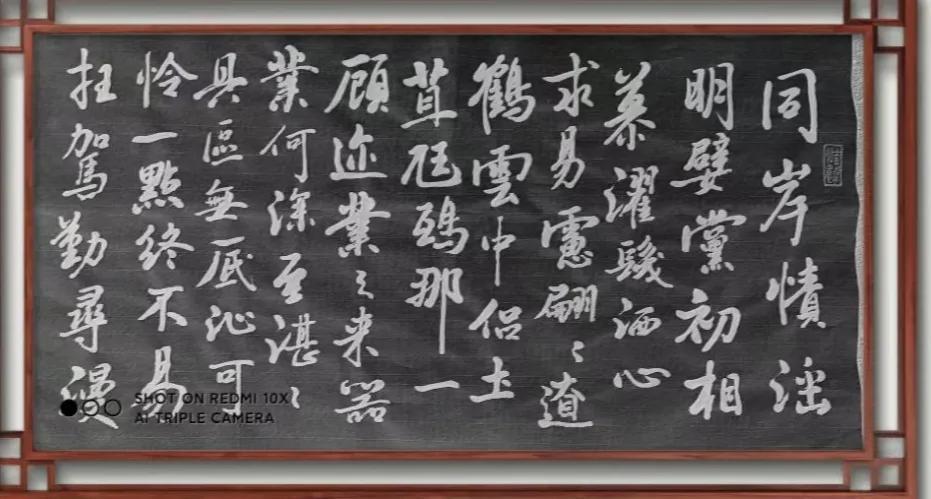 同岸幘滛
明嬖黨初相
慕濯髮洒心
求易慮翩〻遼
鶴雲中侣土
苴尫鵄那一
顧迹業〻来器
業何深至湛〻
具區無底沚可
怜一點終不易
枉駕勤尋漫
SHOT ON REDMI 10X
AI TRIPLE CAMERA